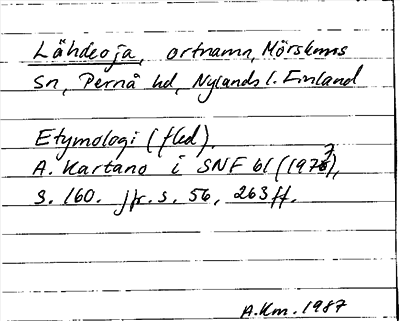 Lähdeoja, ortnamn, Mörskoms
sn, Pernå hd, Nylands l. Finland
Etymologi (fled).
A. Kartano i SNF 61 (1977),
s. 160. jfr. s. 56, 263 ff.
A.Km. 1987